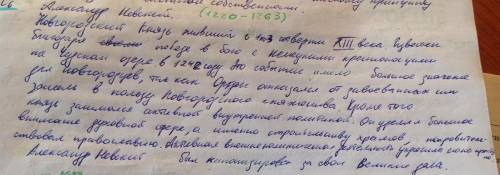 собственности принципу
Александр Невский. (1220-1263)
Новгородский Князь живший в чтверти XIII века Извесен
благодаря победе в бою с немецкими крестоносцами
на чудском озере в 1242 году Это событие имело большое значение
для новгородцев, так как Орден отказался от завоеванных им
земель в пользу Новгородского княжества. Кроме того
князь занимался активной внутренней политикой. Он уделял большое
внимание духовной сфере, а именно строительству храмов, покровитель-
ствовал православию. Активная деятельность укрепила
Александр Невский был канонизирован за свои Великие дела.